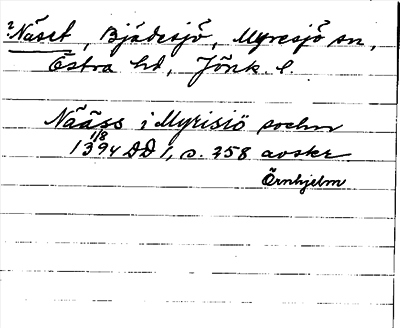 ? Näset, Bjädesjö, Myresjö sn,
Östra hd, Jönk. l.
Nääss i Myrisiö sochn
1/8
1394 DD 1, s. 258 avskr.
Örnhjelm